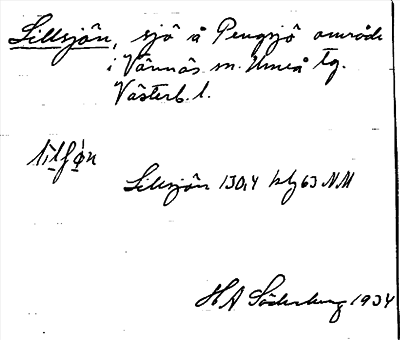 Lillsjön, sjö å Pengsjö område
i Vännäs sn. Umeå tg.
Västerb. l.
Lillsjön 130,4 kbl 63 NM
H A Söderberg 1934